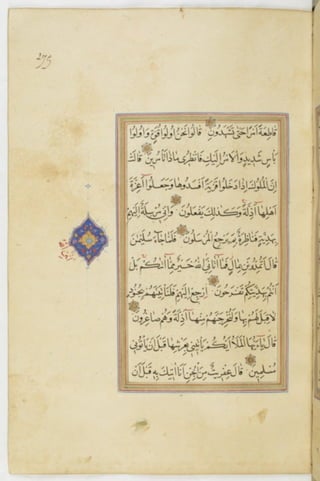 275
قَاطِعَةً أَمْرًا حَتَّىٰ تَشْهَدُونِ قَالُوا نَحْنُ أُولُوا قُوَّةٍ وَأُولُوا
بَأْسٍ شَدِيدٍ وَالْأَمْرُ إِلَيْكِ فَانْظُرِي مَاذَا تَأْمُرِينَ قَالَتْ
إِنَّ الْمُلُوكَ إِذَا دَخَلُوا قَرْيَةً أَفْسَدُوهَا وَجَعَلُوا أَعِزَّةَ
أَهْلِهَا أَذِلَّةً وَكَذَٰلِكَ يَفْعَلُونَ وَإِنِّي مُرْسِلَةٌ إِلَيْهِمْ
بِهَدِيَّةٍ فَنَاظِرَةٌ بِمَ يَرْجِعُ الْمُرْسَلُونَ فَلَمَّا جَاءَ سُلَيْمَٰنَ
قَالَ أَتُمِدُّونَنِ بِمَالٍ فَمَا آتَانِيَ اللَّهُ خَيْرٌ مِمَّا آتَاكُمْ بَلْ
أَنْتُمْ بِهَدِيَّتِكُمْ تَفْرَحُونَ ارْجِعْ إِلَيْهِمْ فَلَنَأْتِيَنَّهُمْ بِجُنُودٍ
لَا قِبَلَ لَهُمْ بِهَا وَلَنُخْرِجَنَّهُمْ مِنْهَا أَذِلَّةً وَهُمْ صَاغِرُونَ
قَالَ يَا أَيُّهَا الْمَلَأُ أَيُّكُمْ يَأْتِينِي بِعَرْشِهَا قَبْلَ أَنْ يَأْتُونِي
مُسْلِمِينَ قَالَ عِفْرِيتٌ مِنَ الْجِنِّ أَنَا آتِيكَ بِهِ قَبْلَ أَنْ